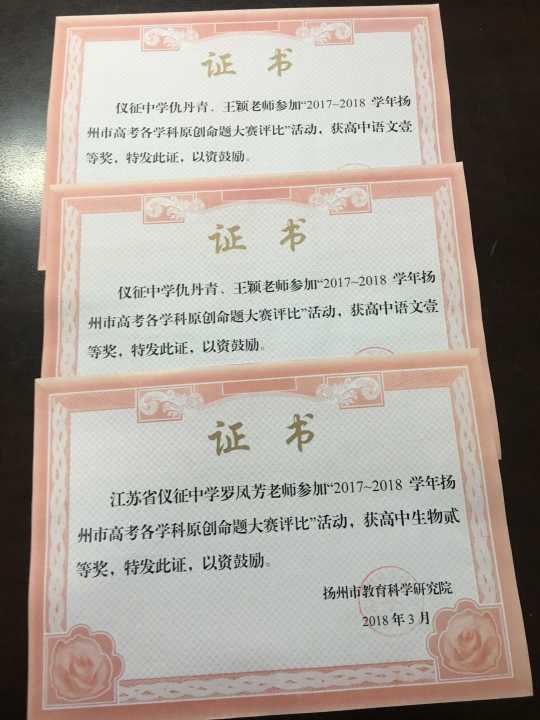 证 书
仪征中学仇丹青、王颖老师参加“2017~2018 学年扬
州市高考各学科原创命题大赛评比”活动，获高中语文壹
等奖，特发此证，以资鼓励。
证 书
仪征中学仇丹青、王颖老师参加“2017~2018 学年扬
州市高考各学科原创命题大赛评比”活动，获高中语文壹
等奖，特发此证，以资鼓励。
证 书
江苏省仪征中学罗凤芳老师参加“2017~2018 学年扬
州市高考各学科原创命题大赛评比”活动，获高中生物贰
等奖，特发此证，以资鼓励。
扬州市教育科学研究院
2018 年 3 月